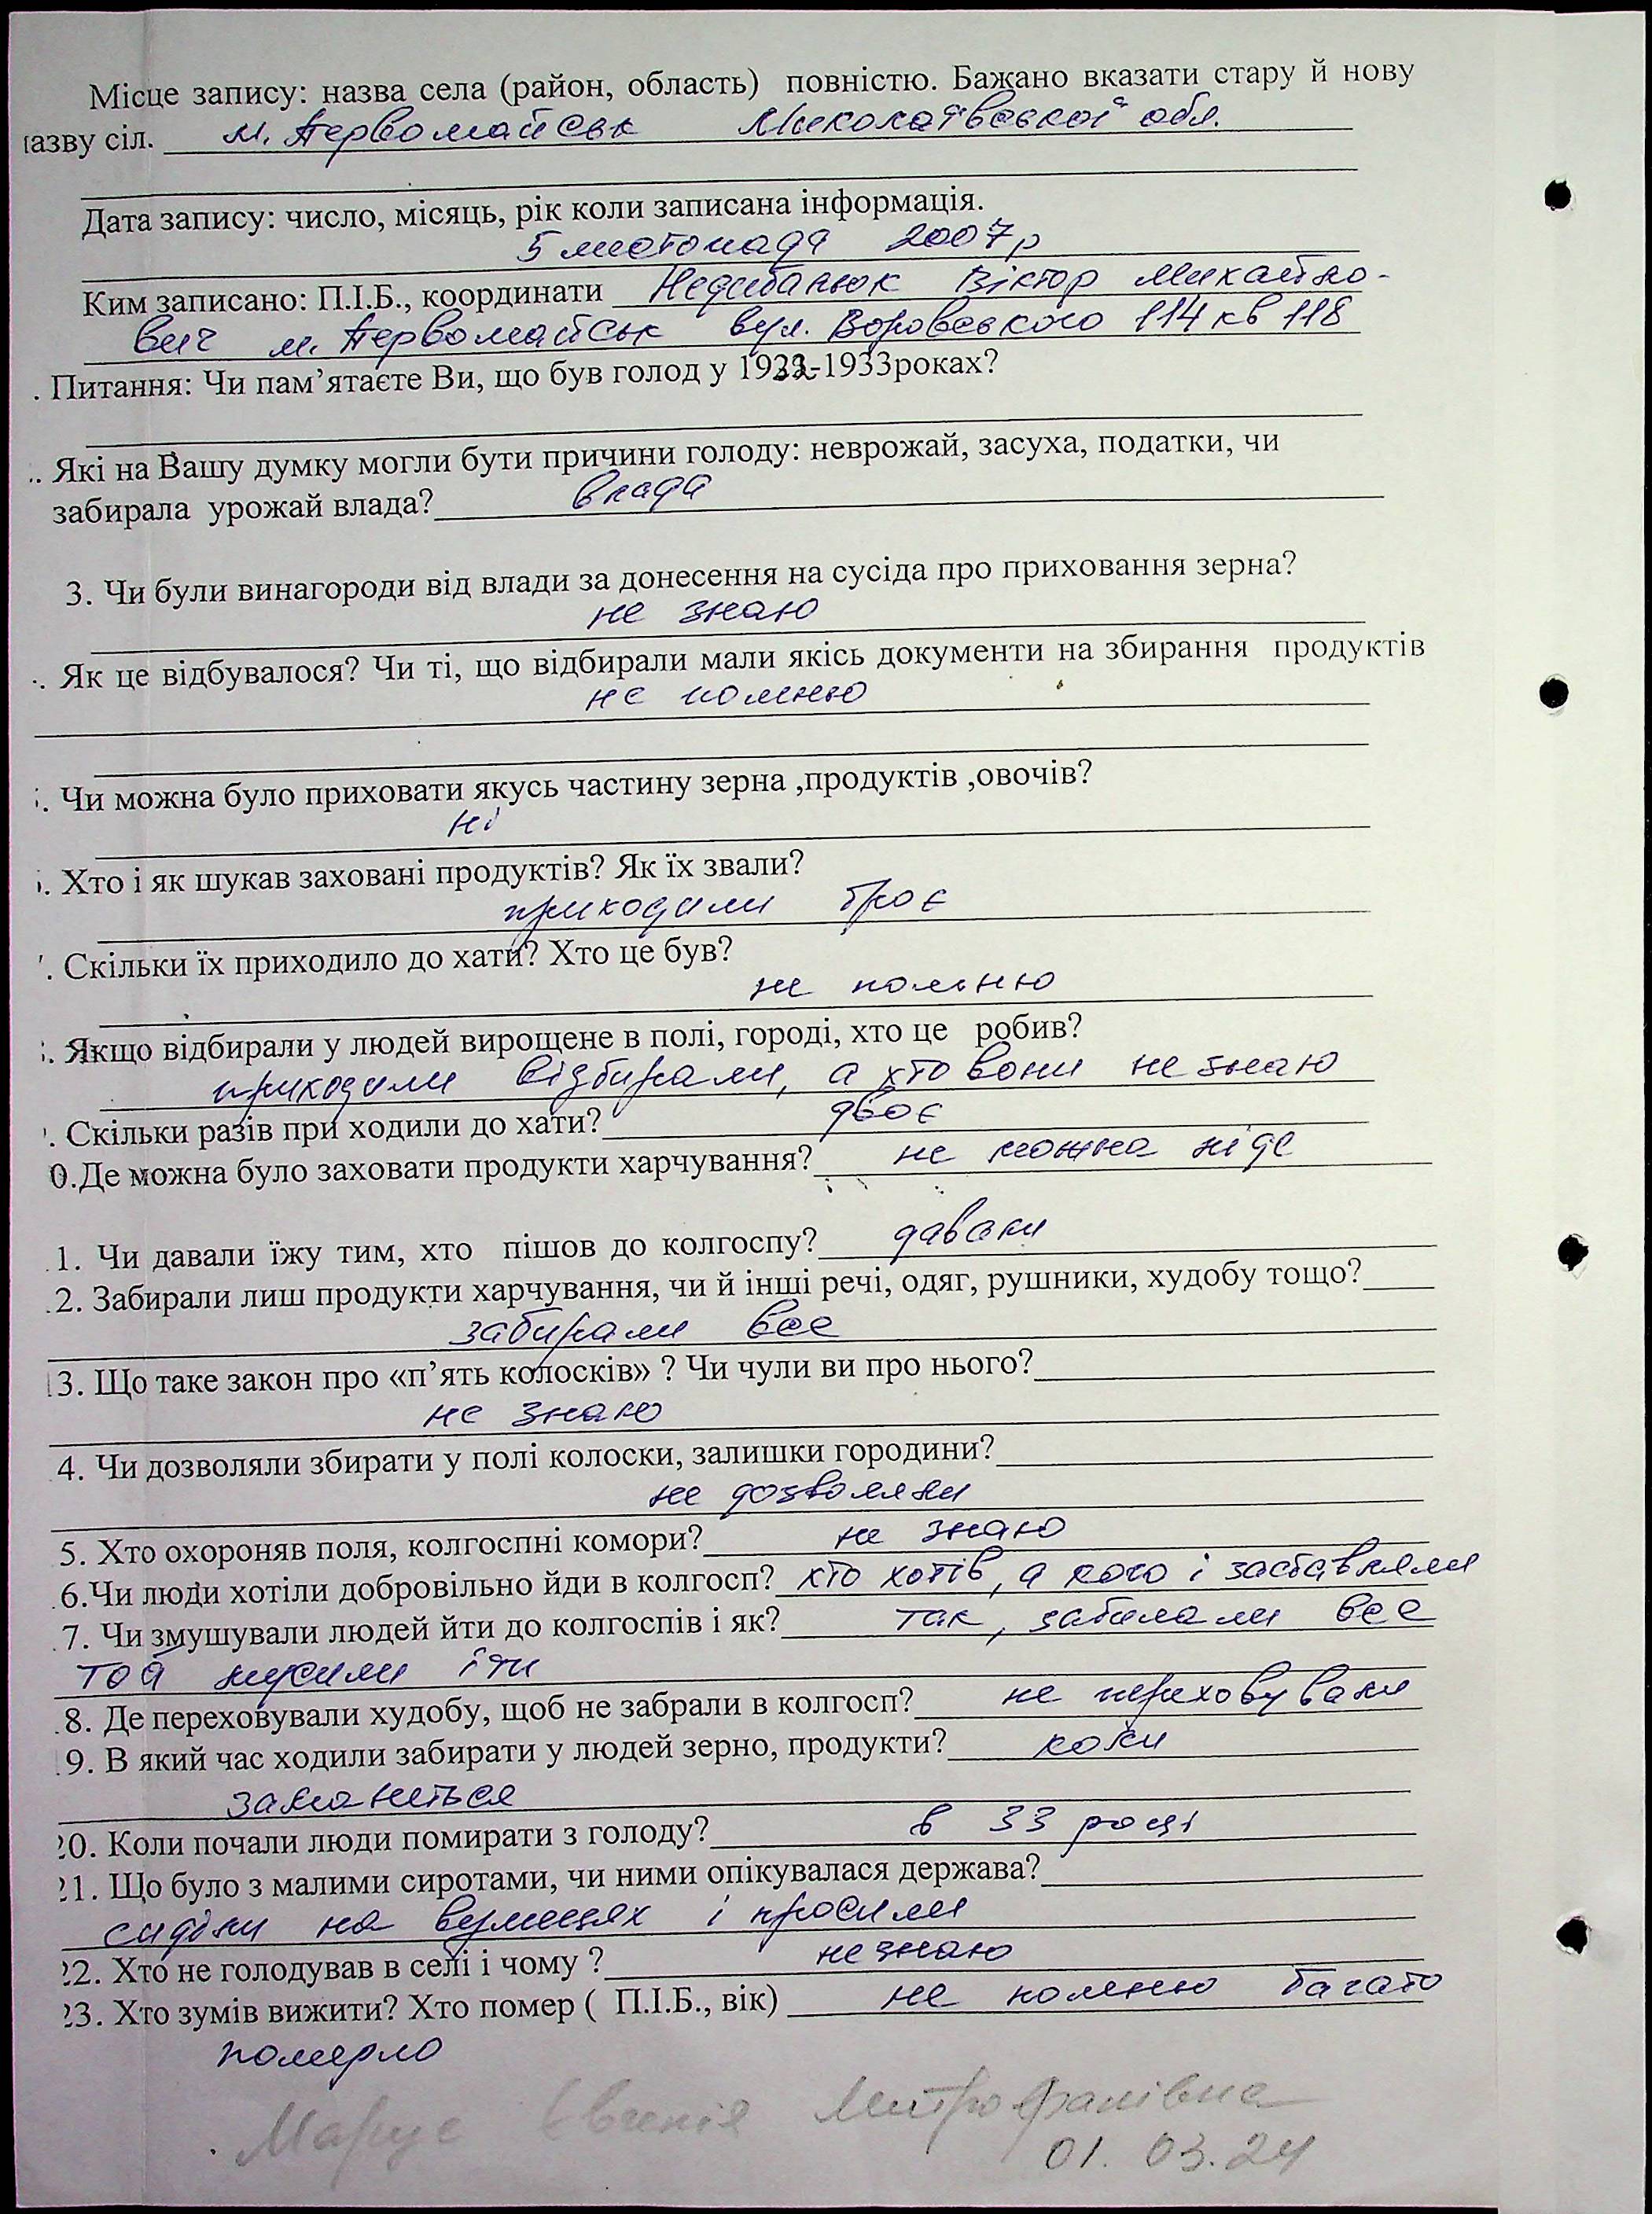 Місце запису: назва села (район, область) повністю. Бажано вказати стару й нову
назву сіл. м. Первомайськ Миколаївської обл.
Дата запису: число, місяць, рік коли записана інформація.
5 листопада 2007р
Ким записано: П.І.Б., координати Недибанюк Віктор Михайло-
вич м. Первомайськ вул. Воровського 114 кв 118
. Питання: Чи пам’ятаєте Ви, що був голод у 1932-1933роках?
.. Які на Вашу думку могли бути причини голоду: неврожай, засуха, податки, чи
забирала урожай влада? влада
3. Чи були винагороди від влади за донесення на сусіда про приховання зерна?
не знаю
. Як це відбувалося? Чи ті, що відбирали мали якісь документи на збирання продуктів
не помню
. Чи можна було приховати якусь частину зерна ,продуктів ,овочів?
ні
. Хто і як шукав заховані продуктів? Як їх звали?
приходили троє
. Скільки їх приходило до хати? Хто це був?
не помню
. Якщо відбирали у людей вирощене в полі, городі, хто це робив?
приходили відбирали, а хто вони не знаю
. Скільки разів при ходили до хати? двоє
0.Де можна було заховати продукти харчування? не можна ніде
1. Чи давали їжу тим, хто пішов до колгоспу? давали
.2. Забирали лиш продукти харчування, чи й інші речі, одяг, рушники, худобу тощо?
забирали все
3. Що таке закон про «п’ять колосків» ? Чи чули ви про нього?
не знаю
4. Чи дозволяли збирати у полі колоски, залишки городини?
не дозволяли
5. Хто охороняв поля, колгоспні комори? не знаю
.6.Чи люди хотіли добровільно йди в колгосп? хто хотів, а кого і заставляли
.7. Чи змушували людей йти до колгоспів і як? так, забирали все
той мусили іти
.8. Де переховували худобу, щоб не забрали в колгосп? не переховували
9. В який час ходили забирати у людей зерно, продукти? коли
заманеться
20. Коли почали люди помирати з голоду? в 33 році
21. Що було з малими сиротами, чи ними опікувалася держава?
сиділи на вулицях і просили
22. Хто не голодував в селі і чому ? не знаю
23. Хто зумів вижити? Хто помер ( П.І.Б., вік) не помню багато
померло
Євгенія Митрофанівна
01.03.24